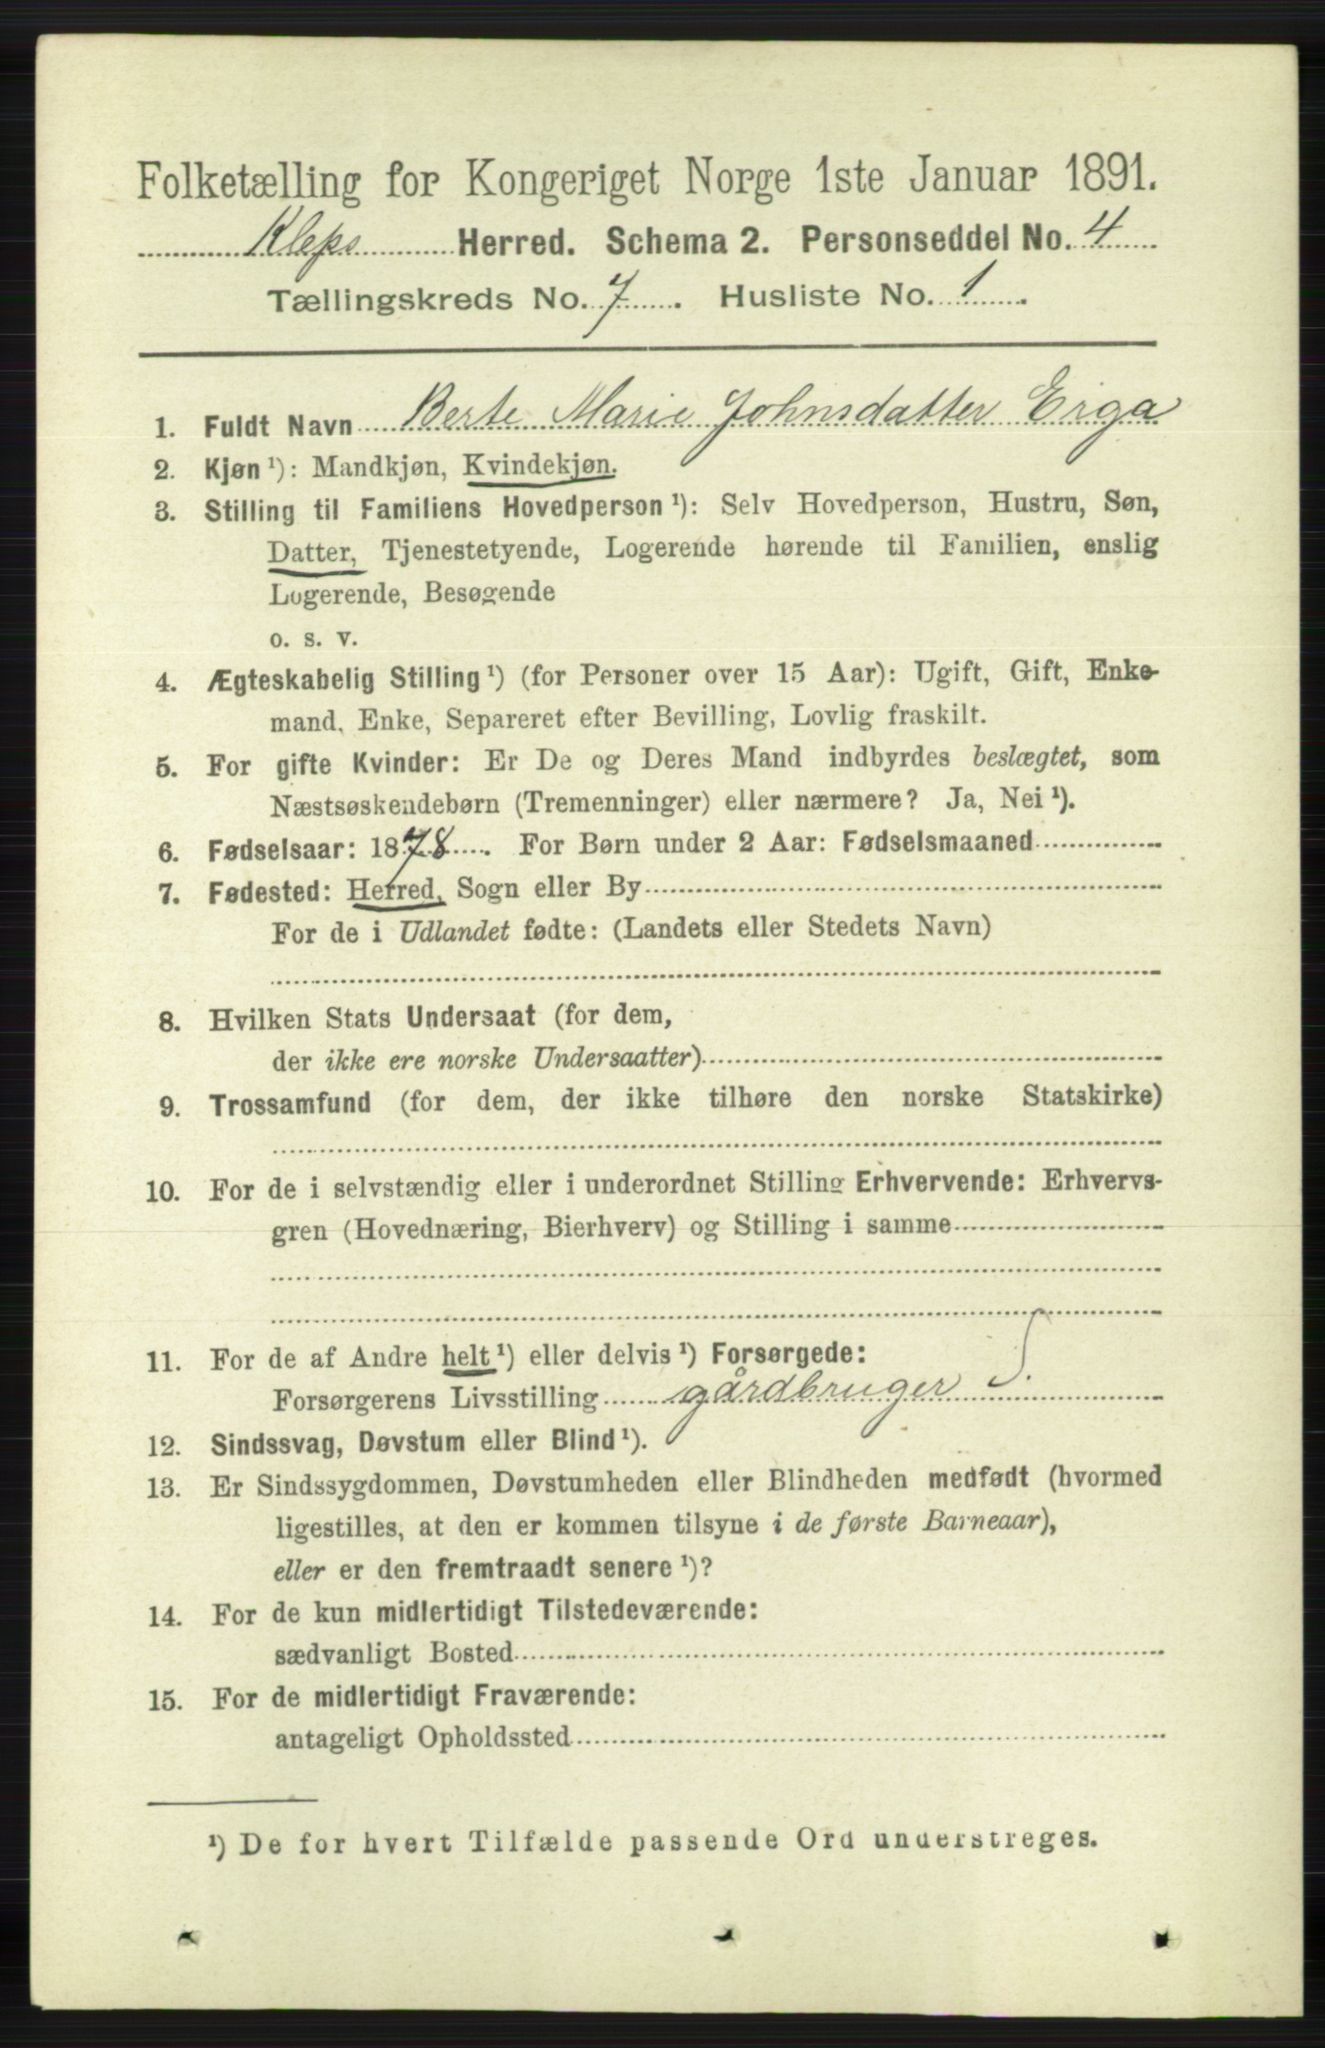 Folketælling for Kongeriget Norge 1ste Januar 1891.
Kleps Herred. Schema 2. Personseddel No. 4
Tællingskreds No. 7. Husliste No. 1.
1. Fuldt Navn Berte Marie Johnsdatter Erga
2. Kjøn ¹): Mandkjøn, Kvindekjøn.
3. Stilling til Familiens Hovedperson ¹): Selv Hovedperson, Hustru, Søn,
Datter, Tjenestetyende, Logerende hørende til Familien, enslig
Logerende, Besøgende
o. s. v.
4. Ægteskabelig Stilling ¹) (for Personer over 15 Aar): Ugift, Gift, Enke-
mand, Enke, Separeret efter Bevilling, Lovlig fraskilt.
5. For gifte Kvinder: Er De og Deres Mand indbyrdes beslægtet, som
Næstsøskendebørn (Tremenninger) eller nærmere? Ja, Nei ¹).
6. Fødselsaar: 1878. For Børn under 2 Aar: Fødselsmaaned
7. Fødested: Herred, Sogn eller By
For de i Udlandet fødte: (Landets eller Stedets Navn)
8. Hvilken Stats Undersaat (for dem,
der ikke ere norske Undersaatter)
9. Trossamfund (for dem, der ikke tilhøre den norske Statskirke)
10. For de i selvstændig eller i underordnet Stilling Erhvervende: Erhvervs-
gren (Hovednæring, Bierhverv) og Stilling i samme
11. For de af Andre helt ¹) eller delvis ¹) Forsørgede:
Forsørgerens Livsstilling gårdbruger S.
12. Sindssvag, Døvstum eller Blind ¹).
13. Er Sindssygdommen, Døvstumheden eller Blindheden medfødt (hvormed
ligestilles, at den er kommen tilsyne i de første Barneaar),
eller er den fremtraadt senere ¹)?
14. For de kun midlertidigt Tilstedeværende:
sædvanligt Bosted
15. For de midlertidigt Fraværende:
antageligt Opholdssted
¹) De for hvert Tilfælde passende Ord understreges.